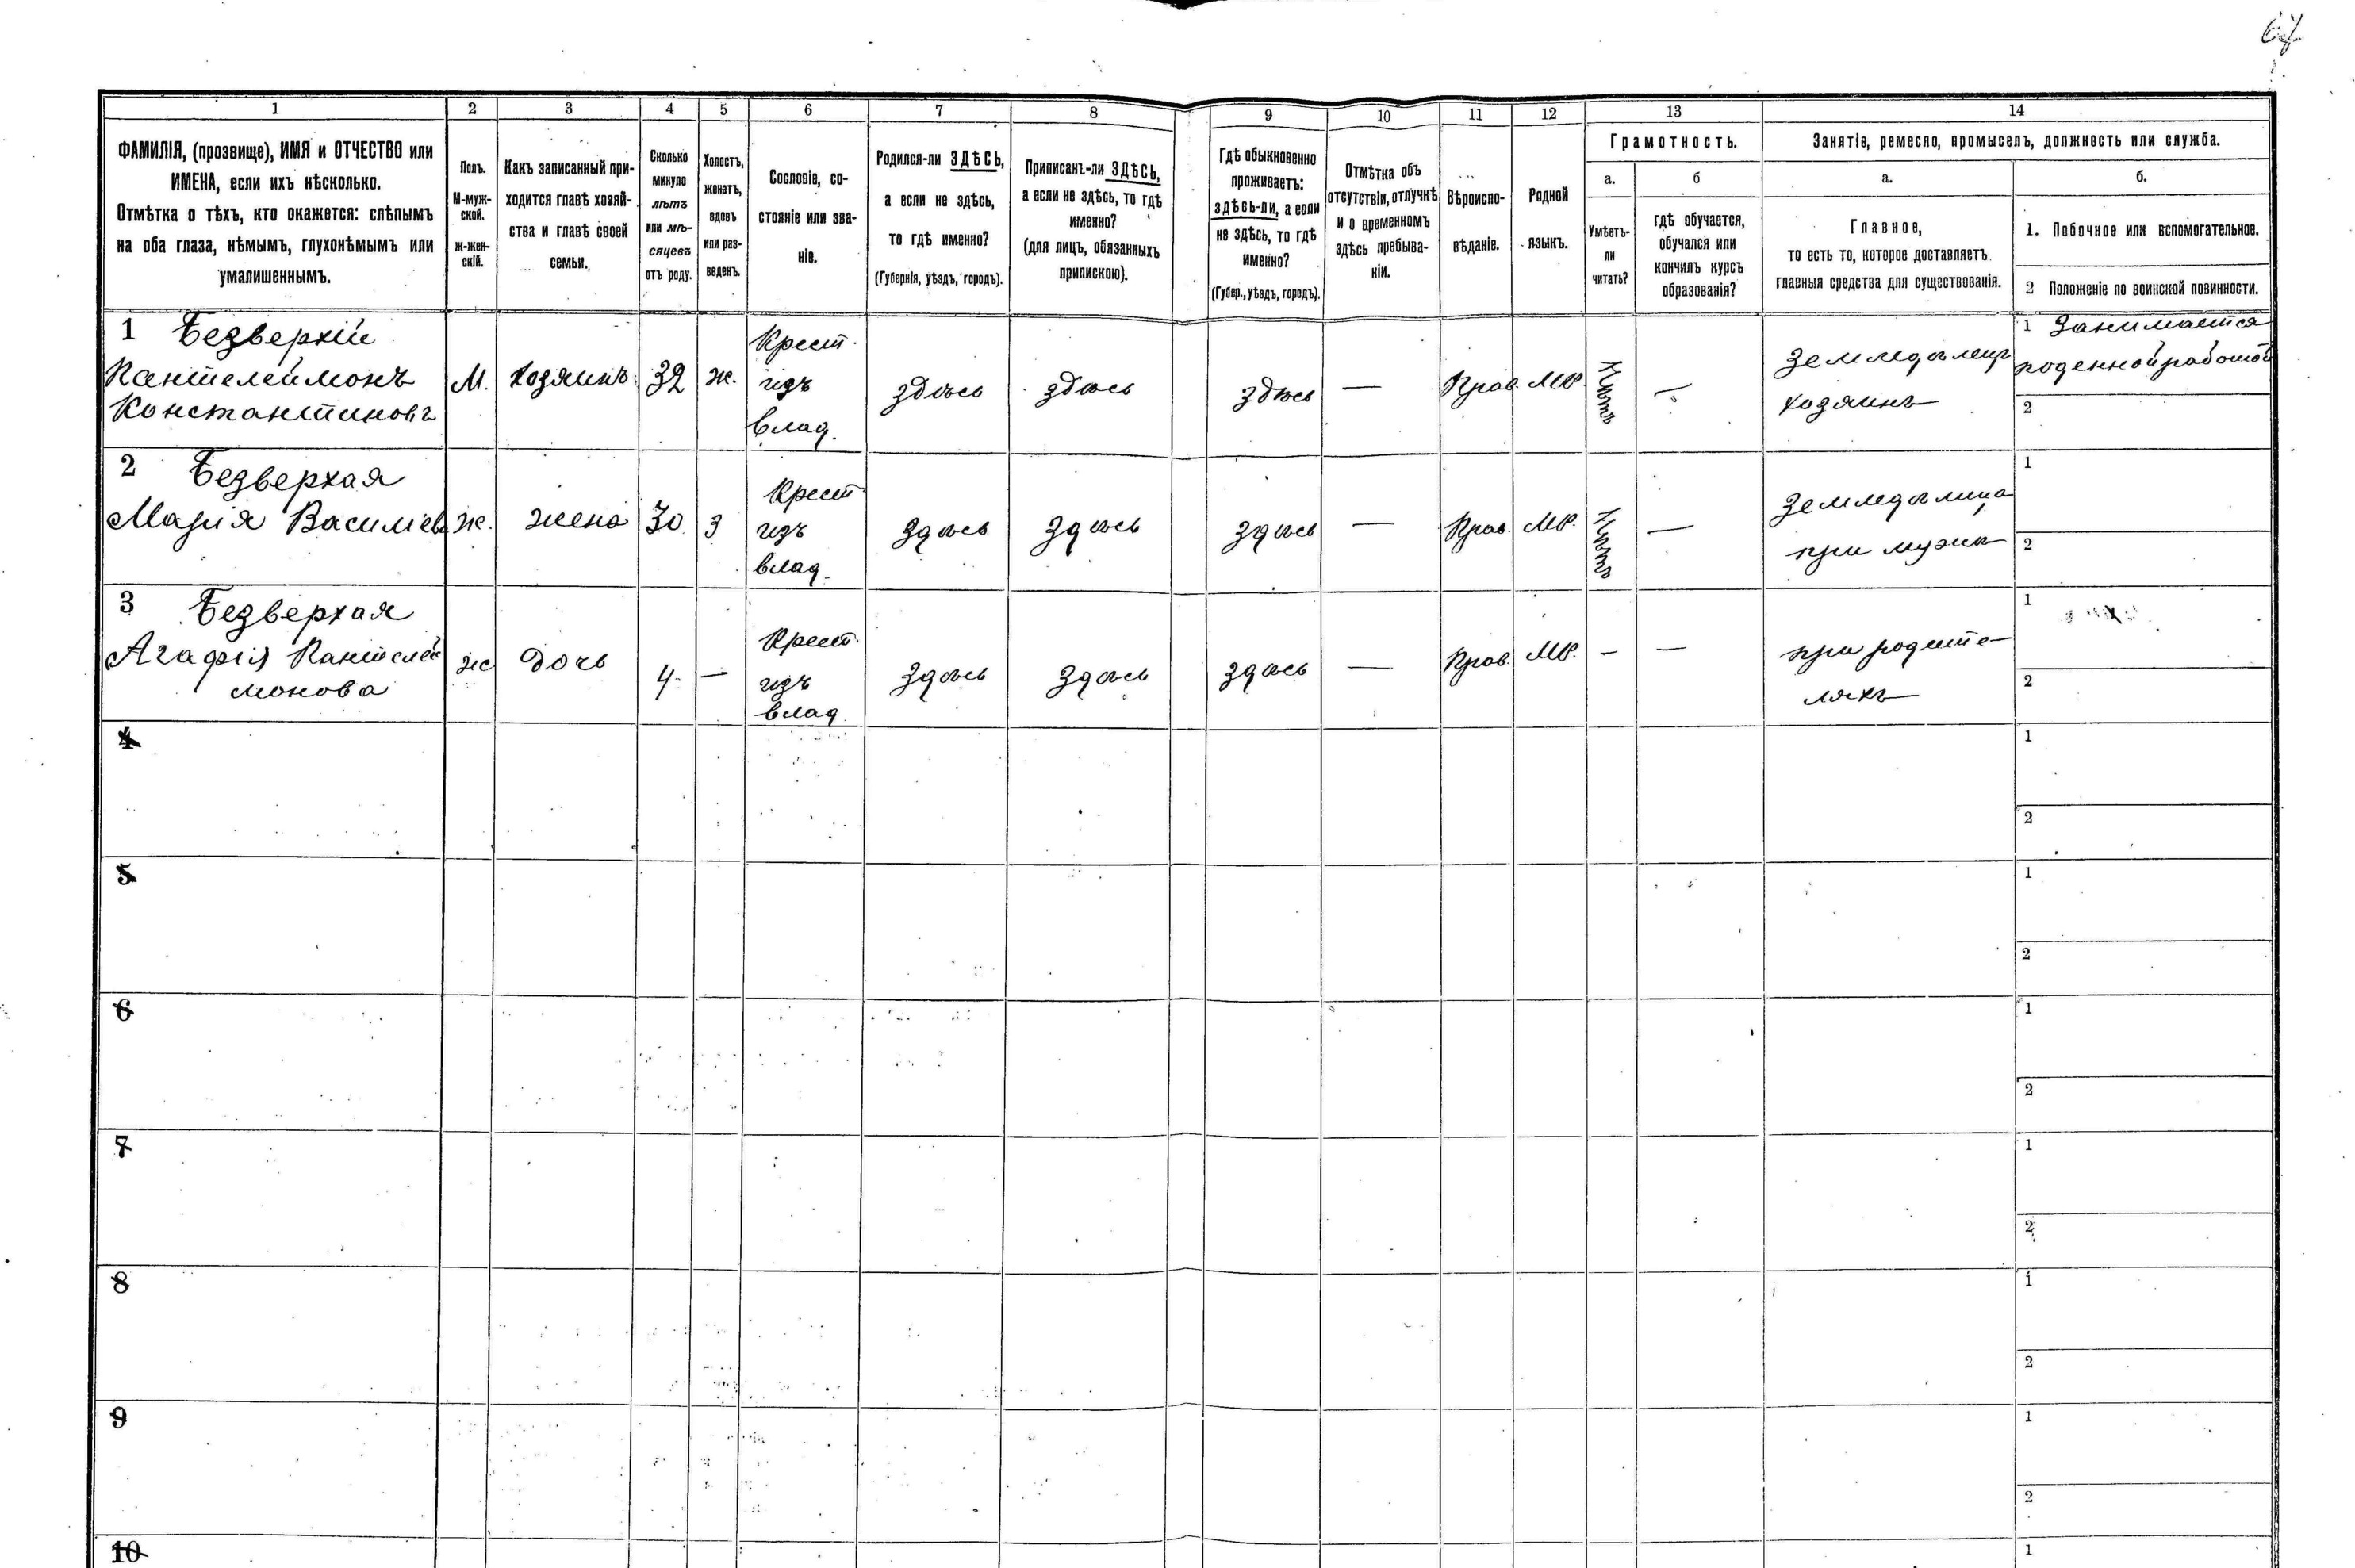 67
1 2 3 4 5 6 7 8 9 10 11 12 13 14
ФАМИЛІЯ, (прозвище), ИМЯ и ОТЧЕСТВО или
ИМЕНА, если ихъ нѣсколько.
Отмѣтка о тѣхъ, кто окажется: слѣпымъ
на оба глаза, нѣмымъ, глухонѣмымъ или
умалишеннымъ.
Полъ.
М-муж-
ской.
ж-жен-
скій.
Какъ записанный при-
ходится главѣ хозяй-
ства и главѣ своей
семьи.
Сколько
минуло
лѣтъ
или мѣ-
сяцевъ
отъ роду.
Холостъ,
женатъ,
вдовъ
или раз-
веденъ.
Сословіе, со-
стояніе или зва-
ніе.
Родился-ли ЗДѢСЬ,
а если не здѣсь,
то гдѣ именно?
(Губернія, уѣздъ, городъ).
Приписанъ-ли ЗДѢСЬ,
а если не здѣсь, то гдѣ
именно?
(для лицъ, обязанныхъ
припискою).
Гдѣ обыкновенно
проживаетъ:
здѣсь-ли, а если
не здѣсь, то гдѣ
именно?
(Губер., уѣздъ, городъ).
Отмѣтка объ
отсутствіи, отлучкѣ
и о временномъ
здѣсь пребыва-
ніи.
Вѣроиспо-
вѣданіе.
Родной
языкъ.
Грамотность.
а.
Умѣетъ-
ли
читать?
б
гдѣ обучается,
обучался или
кончилъ курсъ
образованія?
Занятіе, ремесло, промыселъ, должность или служба.
а.
Главное,
то есть то, которое доставляетъ
главныя средства для существованія.
б.
1. Побочное или вспомогательное.
2 Положеніе по воинской повинности.
1 Безверхій
Пантелеймонъ
Константиновъ
М.
хозяинъ
32
ж.
Крест.
изъ
влад.
здѣсь
здѣсь
здѣсь
—
Прав.
МР.
Нѣтъ
—
Земледѣлецъ
хозяинъ
1 Занимается
поденной работой
2
2 Безверхая
Марія Василіев
ж.
жена
30
з
Крест
изъ
влад.
здѣсь
здѣсь
здѣсь
—
Прав.
МР.
Нѣтъ
—
Земледѣлица
при мужѣ
1
2
3 Безверхая
Агафія Пантелей
монова
ж
дочь
4
—
Крест.
изъ
влад.
здѣсь
здѣсь
здѣсь
—
Прав.
МР.
—
—
при родите-
ляхъ
1
2
4
1
2
5
1
2
6
1
2
7
1
2
8
1
2
9
1
2
10
1